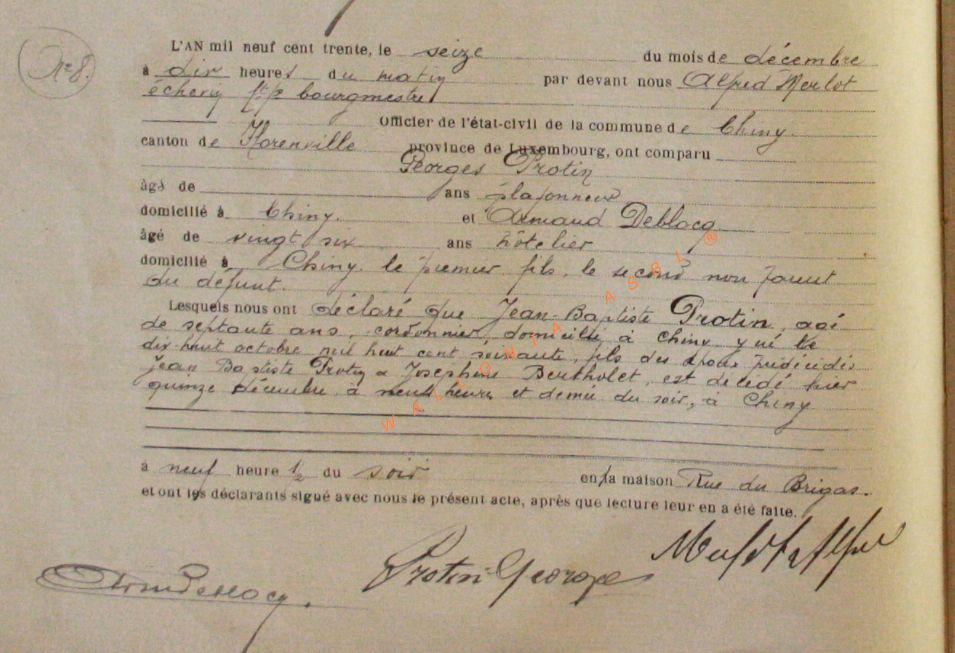 N° 8.
L'AN mil neuf cent trente, le seize du mois de décembre
à dix heures du matin par devant nous Alfred Merlot
échevin ff bourgmestre
Officier de l'état-civil de la commune de Chiny
canton de Florenville province de Luxembourg, ont comparu
Georges Protin
âgé de ans plafonneur
domicilié à Chiny. et Armand Deblocq
âgé de vingt six ans hôtelier
domicilié à Chiny. le premier fils, le second non parent
du défunt.
Lesquels nous ont déclaré que Jean-Baptiste Protin, agé
de septante ans, cordonnier, domicilié à Chiny y né le
dix-huit octobre mil huit cent soixante, fils des époux prédécédés
Jean Baptiste Protin & Josephine Bertholet, est décédé hier
quinze décembre à neuf heures et demie du soir, à Chiny
à neuf heure 1/2 du soir en la maison Rue du Brigas.
et ont les déclarants signé avec nous le présent acte, après que lecture leur en a été faite.
Protin George
WALLONIA ASBL ©